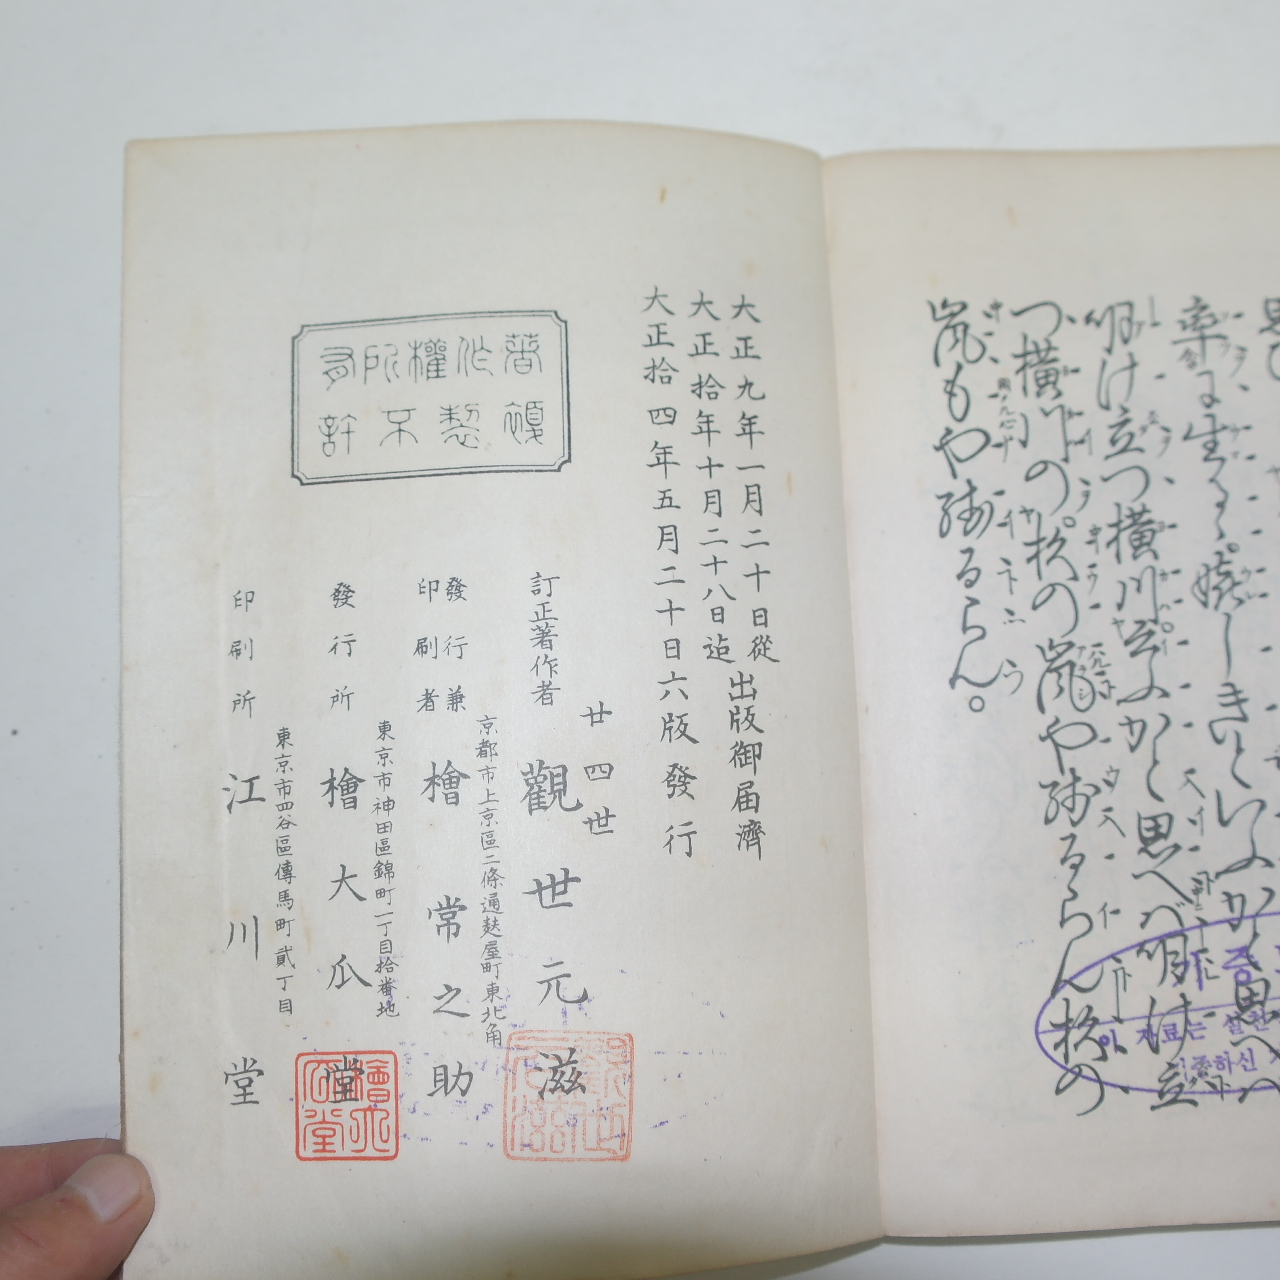 率に生るゝ。嬉しきといふかと思へば
明け立つ、横川 かと思へば明け立
つ、横川の。杉の嵐や残るらん杉の
嵐もや残るらん。
기증
이 자료는
기증하신
大正九年一月二十日從
大正拾年十月二十八日迄 出版御届濟
大正拾四年五月二十日六版發行
著作權所有
不許複製
訂正著作者 廿四世 觀世元滋
京都市上京區二條通麩屋町東北角
發行兼印刷者 檜常之助
東京市神田區錦町一丁目拾番地
發行所 檜大瓜堂
東京市四谷區傳馬町貳丁目
印刷所 江川堂